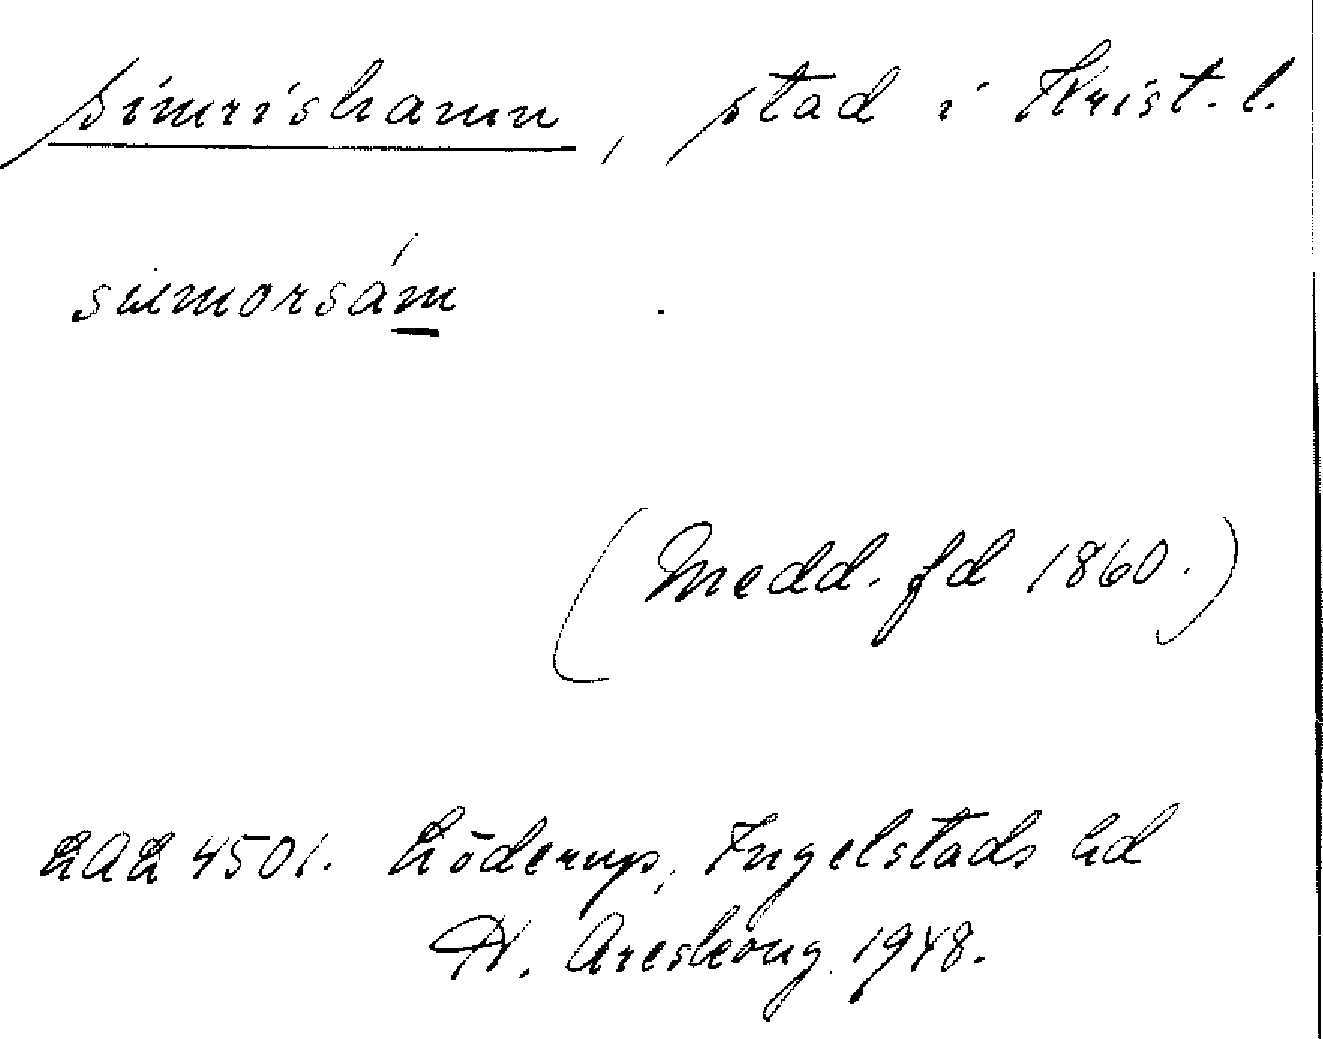 Simrishamn, stad i Krist. l.
siemorsám
(Medd. fd 1860.)
LAL 4501. Löderup, Ingelstads hd
H. Areskoug 1948.